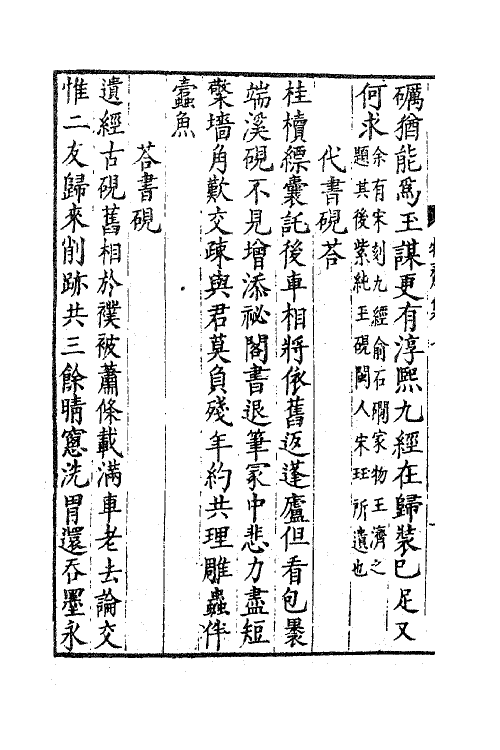 礪猶能爲王謀更有淳熙九經在歸裝已足又
何求余有宋刻九經俞石磵家物王濟之
題其後紫純王硯閩人宋珏所遺也
代書硯荅
桂櫝縹囊託後車相將依舊返蓬廬但看包裹
端溪硯不見增添祕閣書退筆冢中悲力盡短
檠墻角歎交疎與君莫負殘年約共理雕蟲伴
蠧魚
荅書硯
遺經古硯舊相於襆被蕭條載滿車老去論交
惟二友歸來削跡共三餘晴窻洗胃還吞墨永